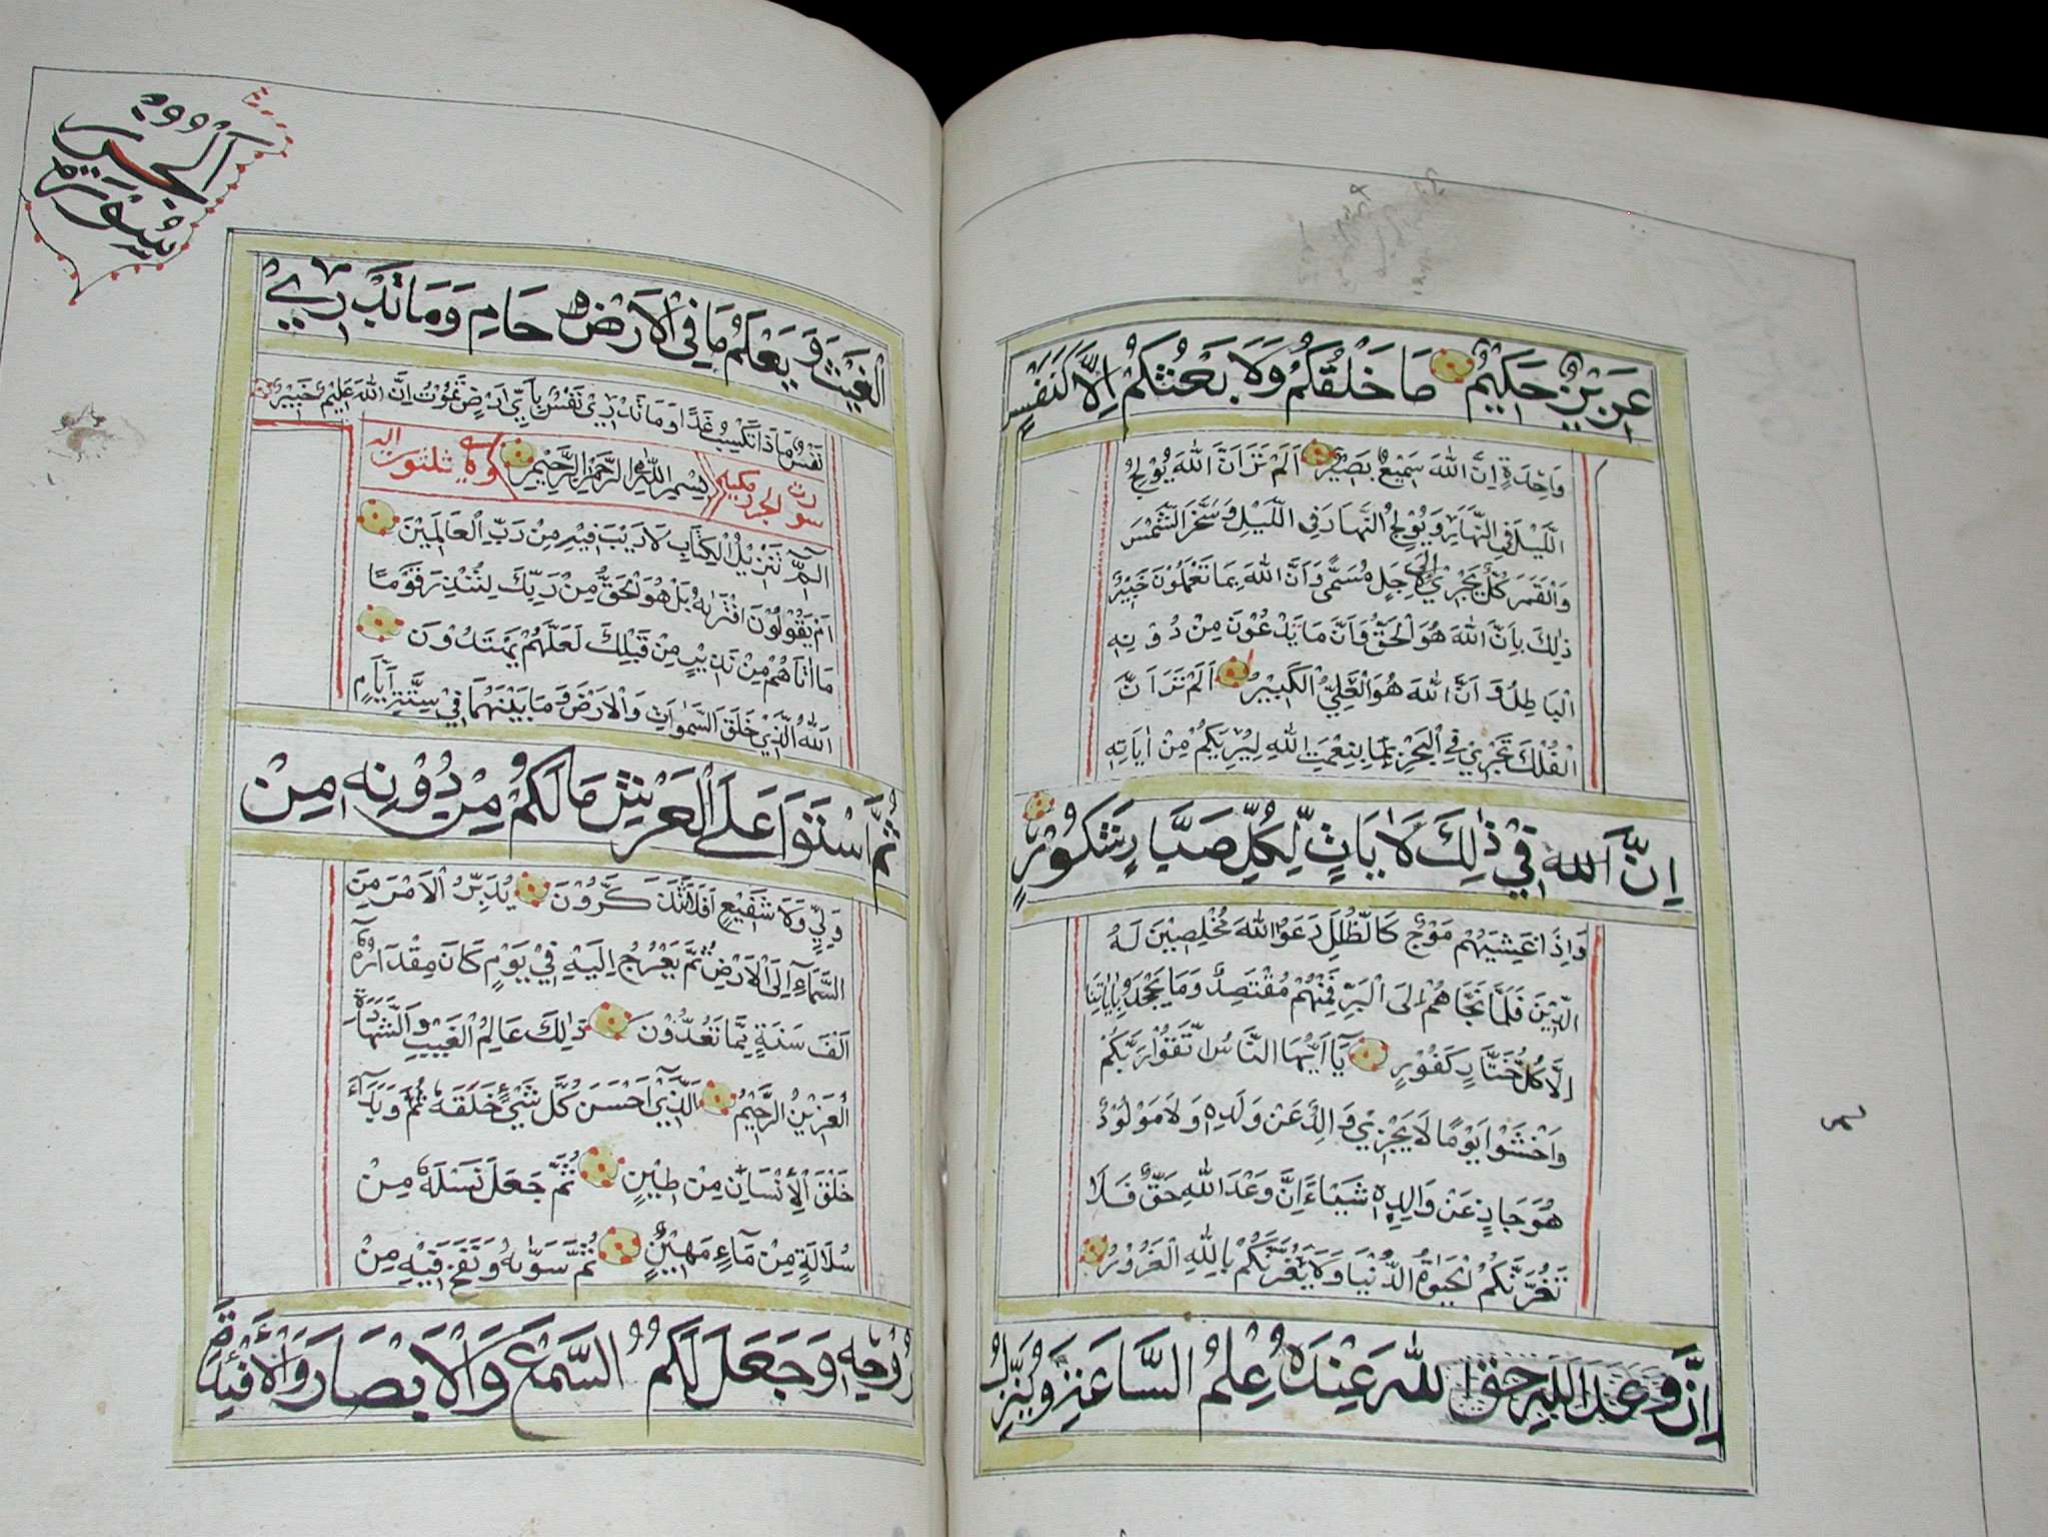 عَزِيْزٌ حَكِيْمٌ مَا خَلْقُكُمْ وَلَا بَعْثُكُمْ اِلَّا كَنَفْسٍ
وَاحِدَةٍ اِنَّ اللّٰهَ سَمِيْعٌ بَصِيْرٌ اَلَمْ تَرَ اَنَّ اللّٰهَ يُوْلِجُ
الَّيْلَ فِى النَّهَارِ وَيُوْلِجُ النَّهَارَ فِى اللَّيْلِ وَسَخَّرَ الشَّمْسَ
وَالْقَمَرَ كُلٌّ يَجْرِيْ اِلٰى اَجَلٍ مُسَمًّى وَاَنَّ اللّٰهَ بِمَا تَعْمَلُوْنَ خَبِيْرٌ
ذٰلِكَ بِاَنَّ اللّٰهَ هُوَ الْحَقُّ وَاَنَّ مَا يَدْعُوْنَ مِنْ دُوْنِهِ
الْبَاطِلُ وَاَنَّ اللّٰهَ هُوَ الْعَلِيُّ الْكَبِيْرُ اَلَمْ تَرَ اَنَّ
الْفُلْكَ تَجْرِيْ فِى الْبَحْرِ بِنِعْمَتِ اللّٰهِ لِيُرِيَكُمْ مِنْ اٰيَاتِهِ
اِنَّ اللّٰهَ فِيْ ذٰلِكَ لَاٰيَاتٍ لِّكُلِّ صَبَّارٍ شَكُوْرٍ
وَاِذَا غَشِيَهُمْ مَوْجٌ كَالظُّلَلِ دَعَوُا اللّٰهَ مُخْلِصِيْنَ لَهُ
الدِّيْنَ فَلَمَّا نَجَّاهُمْ اِلَى الْبَرِّ فَمِنْهُمْ مُقْتَصِدٌ وَمَا يَجْحَدُ بِاٰيَاتِنَا
اِلَّا كُلُّ خَتَّارٍ كَفُوْرٍ يَآ اَيُّهَا النَّاسُ اتَّقُوْا رَبَّكُمْ
وَاخْشَوْا يَوْمًا لَا يَجْزِيْ وَالِدٌ عَنْ وَلَدِهِ وَلَا مَوْلُوْدٌ
هُوَ جَازٍ عَنْ وَالِدِهِ شَيْاءً اِنَّ وَعْدَ اللّٰهِ حَقٌّ فَلَا
تَغُرَّنَّكُمْ الْحَيٰوةُ الدُّنْيَا وَلَا يَغُرَّنَّكُمْ بِاللّٰهِ الْغَرُوْرُ
اِنَّ وَعْدَ اللّٰهِ حَق اللّٰهَ عِنْدَهُ عِلْمُ السَّاعَةِ وَيُنَزِّلُ
سُوْرَة
الْجرز
الْغَيْثَ وَيَعْلَمُ مَا فِى الْاَرْضِ حَامِ وَمَا تَدْرِيْ
نَفْسٌ مَاذَا تَكْسِبُ غَدًا وَمَا تَدْرِيْ نَفْسٌ بِاَيِّ اَرْضٍ تَمُوْتُ اِنَّ اللّٰهَ عَلِيْمٌ خَبِيْرٌ
مكية بِسْمِ اللّٰهِ الرَّحْمٰنِ الرَّحِيْمِ وهى ثلثون اية
الٓمّٓ تَنْزِيْلُ الْكِتَابِ لَا رَيْبَ فِيْهِ مِنْ رَبِّ الْعَالَمِيْنَ
اَمْ يَقُوْلُوْنَ افْتَرٰىهُ بَلْ هُوَ الْحَقُّ مِنْ رَبِّكَ لِتُنْذِرَ قَوْمًا
مَا اَتَاهُمْ مِنْ نَذِيْرٍ مِنْ قَبْلِكَ لَعَلَّهُمْ يَهْتَدُوْنَ
اَللّٰهُ الَّذِيْ خَلَقَ السَّمٰوَاتِ وَالْاَرْضَ وَمَا بَيْنَهُمَا فِيْ سِتَّةِ اَيَّامٍ
ثُمَّ اسْتَوَا عَلَى الْعَرْشِ مَا لَكُمْ مِنْ دُوْنِهِ مِنْ
وَلِيٍّ وَلَا شَفِيْعٍ اَفَلَا تَتَذَكَّرُوْنَ يُدَبِّرُ الْاَمْرَ مِنَ
السَّمَآءِ اِلَى الْاَرْضِ ثُمَّ يَعْرُجُ اِلَيْهِ فِيْ يَوْمٍ كَانَ مِقْدَارُهُ
اَلْفَ سَنَةٍ مِمَّا تَعُدُّوْنَ ذٰلِكَ عَالِمُ الْغَيْبِ وَالشَّهَادَةِ
الْعَزِيْزُ الرَّحِيْمُ اَلَّذِيْ اَحْسَنَ كُلَّ شَيْءٍ خَلَقَهُ ثُمَّ وَبَدَاَ
خَلْقَ الْاِنْسَانِ مِنْ طِيْنٍ ثُمَّ جَعَلَ نَسْلَهُ مِنْ
سُلَالَةٍ مِنْ مَآءٍ مَهِيْنٍ ثُمَّ سَوّٰىهُ وَنَفَخَ فِيْهِ مِنْ
رُوْحِهِ وَجَعَلَ لَكُمُ السَّمْعَ وَالْاَبْصَارَ وَالْاَفْئِدَةَ